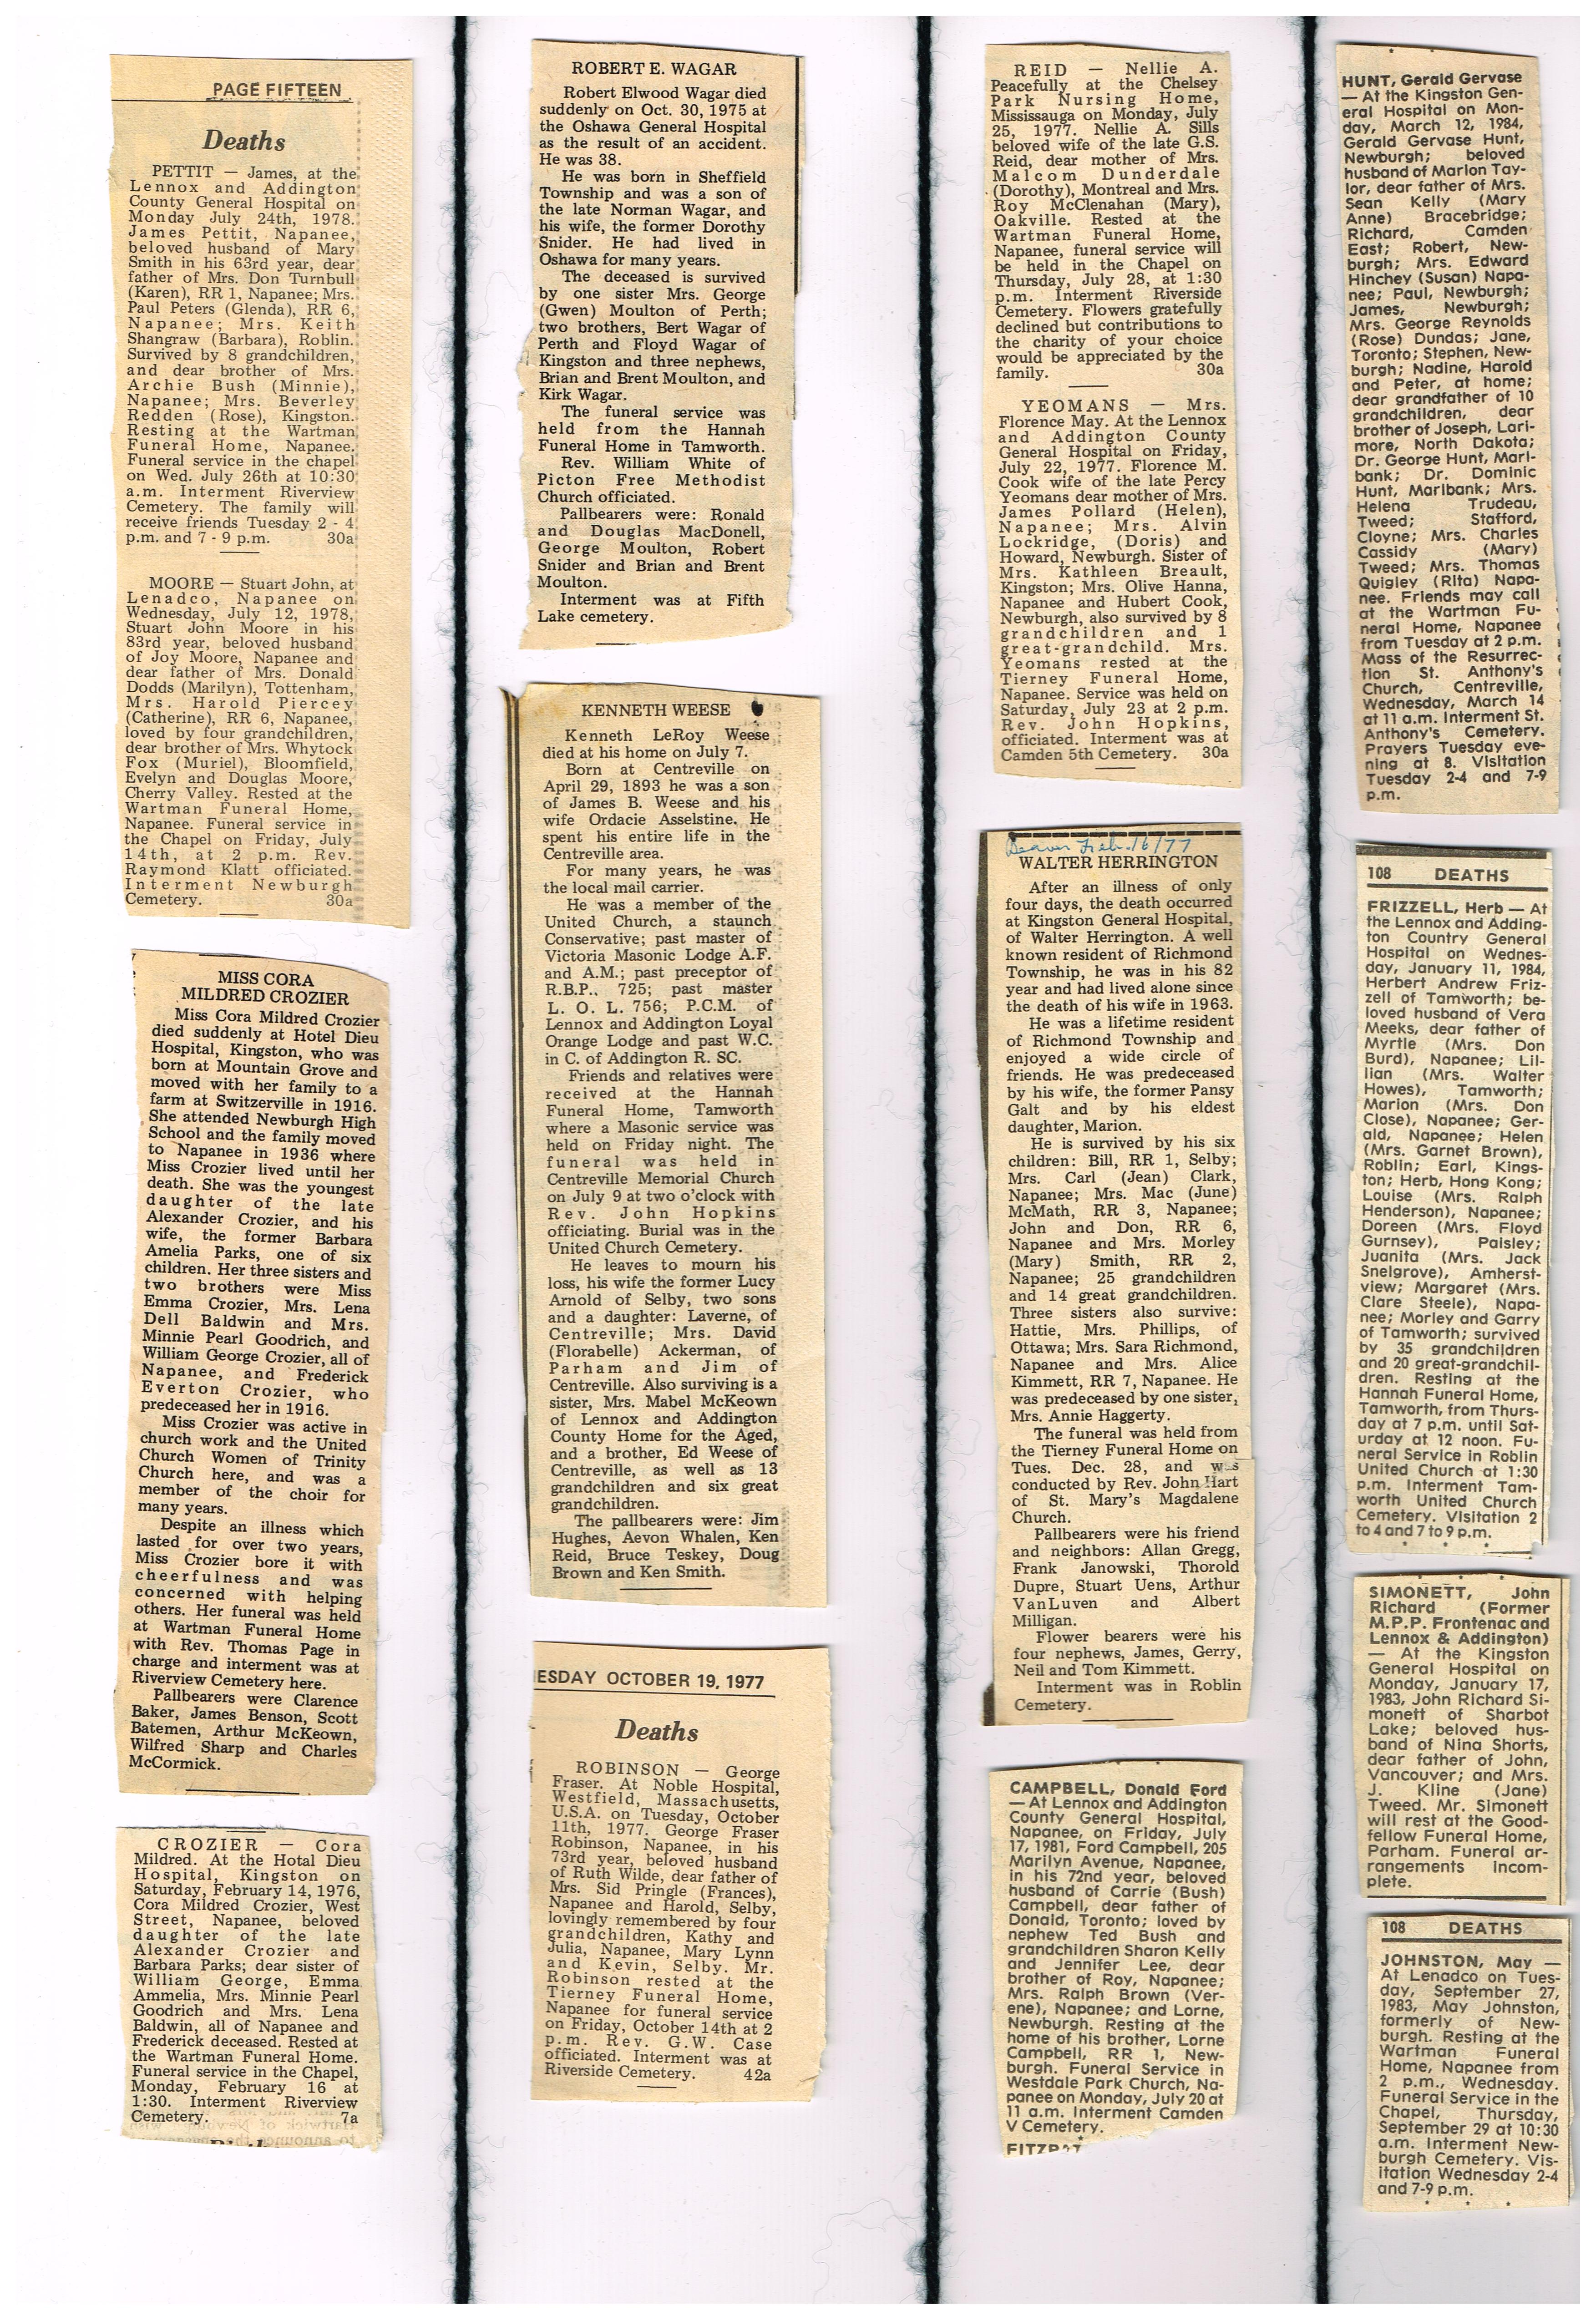 PAGE FIFTEEN
Deaths
PETTIT — James, at the
Lennox and Addington
County General Hospital on
Monday July 24th, 1978.
James Pettit, Napanee,
beloved husband of Mary
Smith in his 63rd year, dear
father of Mrs. Don Turnbull
(Karen), RR 1, Napanee; Mrs.
Paul Peters (Glenda), RR 6,
Napanee; Mrs. Keith
Shangraw (Barbara), Roblin.
Survived by 8 grandchildren,
and dear brother of Mrs.
Archie Bush (Minnie),
Napanee; Mrs. Beverley
Redden (Rose), Kingston.
Resting at the Wartman
Funeral Home, Napanee.
Funeral service in the chapel
on Wed. July 26th at 10:30
a.m. Interment Riverview
Cemetery. The family will
receive friends Tuesday 2 - 4
p.m. and 7 - 9 p.m. 30a
MOORE — Stuart John, at
Lenadco, Napanee on
Wednesday, July 12, 1978,
Stuart John Moore in his
83rd year, beloved husband
of Joy Moore, Napanee and
dear father of Mrs. Donald
Dodds (Marilyn), Tottenham,
Mrs. Harold Piercey
(Catherine), RR 6, Napanee,
loved by four grandchildren,
dear brother of Mrs. Whytock
Fox (Muriel), Bloomfield,
Evelyn and Douglas Moore,
Cherry Valley. Rested at the
Wartman Funeral Home,
Napanee. Funeral service in
the Chapel on Friday, July
14th, at 2 p.m. Rev.
Raymond Klatt officiated.
Interment Newburgh
Cemetery. 30a
MISS CORA
MILDRED CROZIER
Miss Cora Mildred Crozier
died suddenly at Hotel Dieu
Hospital, Kingston, who was
born at Mountain Grove and
moved with her family to a
farm at Switzerville in 1916.
She attended Newburgh High
School and the family moved
to Napanee in 1936 where
Miss Crozier lived until her
death. She was the youngest
daughter of the late
Alexander Crozier, and his
wife, the former Barbara
Amelia Parks, one of six
children. Her three sisters and
two brothers were Miss
Emma Crozier, Mrs. Lena
Dell Baldwin and Mrs.
Minnie Pearl Goodrich, and
William George Crozier, all of
Napanee, and Frederick
Everton Crozier, who
predeceased her in 1916.
Miss Crozier was active in
church work and the United
Church Women of Trinity
Church here, and was a
member of the choir for
many years.
Despite an illness which
lasted for over two years,
Miss Crozier bore it with
cheerfulness and was
concerned with helping
others. Her funeral was held
at Wartman Funeral Home
with Rev. Thomas Page in
charge and interment was at
Riverview Cemetery here.
Pallbearers were Clarence
Baker, James Benson, Scott
Batemen, Arthur McKeown,
Wilfred Sharp and Charles
McCormick.
CROZIER — Cora
Mildred. At the Hotal Dieu
Hospital, Kingston on
Saturday, February 14, 1976,
Cora Mildred Crozier, West
Street, Napanee, beloved
daughter of the late
Alexander Crozier and
Barbara Parks; dear sister of
William George, Emma
Ammelia, Mrs. Minnie Pearl
Goodrich and Mrs. Lena
Baldwin, all of Napanee and
Frederick deceased. Rested at
the Wartman Funeral Home.
Funeral service in the Chapel,
Monday, February 16 at
1:30. Interment Riverview
Cemetery. 7a
ROBERT E. WAGAR
Robert Elwood Wagar died
suddenly on Oct. 30, 1975 at
the Oshawa General Hospital
as the result of an accident.
He was 38.
He was born in Sheffield
Township and was a son of
the late Norman Wagar, and
his wife, the former Dorothy
Snider. He had lived in
Oshawa for many years.
The deceased is survived
by one sister Mrs. George
(Gwen) Moulton of Perth;
two brothers, Bert Wagar of
Perth and Floyd Wagar of
Kingston and three nephews,
Brian and Brent Moulton, and
Kirk Wagar.
The funeral service was
held from the Hannah
Funeral Home in Tamworth.
Rev. William White of
Picton Free Methodist
Church officiated.
Pallbearers were: Ronald
and Douglas MacDonell,
George Moulton, Robert
Snider and Brian and Brent
Moulton.
Interment was at Fifth
Lake cemetery.
KENNETH WEESE
Kenneth LeRoy Weese
died at his home on July 7.
Born at Centreville on
April 29, 1893 he was a son
of James B. Weese and his
wife Ordacie Asselstine. He
spent his entire life in the
Centreville area.
For many years, he was
the local mail carrier.
He was a member of the
United Church, a staunch
Conservative; past master of
Victoria Masonic Lodge A.F.
and A.M.; past preceptor of
R.B.P.. 725; past master
L. O. L. 756; P.C.M. of
Lennox and Addington Loyal
Orange Lodge and past W.C.
in C. of Addington R. SC.
Friends and relatives were
received at the Hannah
Funeral Home, Tamworth
where a Masonic service was
held on Friday night. The
funeral was held in
Centreville Memorial Church
on July 9 at two o'clock with
Rev. John Hopkins
officiating. Burial was in the
United Church Cemetery.
He leaves to mourn his
loss, his wife the former Lucy
Arnold of Selby, two sons
and a daughter: Laverne, of
Centreville; Mrs. David
(Florabelle) Ackerman, of
Parham and Jim of
Centreville. Also surviving is a
sister, Mrs. Mabel McKeown
of Lennox and Addington
County Home for the Aged,
and a brother, Ed Weese of
Centreville, as well as 13
grandchildren and six great
grandchildren.
The pallbearers were: Jim
Hughes, Aevon Whalen, Ken
Reid, Bruce Teskey, Doug
Brown and Ken Smith.
ESDAY OCTOBER 19, 1977
Deaths
ROBINSON — George
Fraser. At Noble Hospital,
Westfield, Massachusetts,
U.S.A. on Tuesday, October
11th, 1977. George Fraser
Robinson, Napanee, in his
73rd year, beloved husband
of Ruth Wilde, dear father of
Mrs. Sid Pringle (Frances),
Napanee and Harold, Selby,
lovingly remembered by four
grandchildren, Kathy and
Julia, Napanee, Mary Lynn
and Kevin, Selby. Mr.
Robinson rested at the
Tierney Funeral Home,
Napanee for funeral service
on Friday, October 14th at 2
p.m. Rev. G.W. Case
officiated. Interment was at
Riverside Cemetery. 42a
REID — Nellie A.
Peacefully at the Chelsey
Park Nursing Home,
Mississauga on Monday, July
25, 1977. Nellie A. Sills
beloved wife of the late G.S.
Reid, dear mother of Mrs.
Malcom Dunderdale
(Dorothy), Montreal and Mrs.
Roy McClenahan (Mary),
Oakville. Rested at the
Wartman Funeral Home,
Napanee, funeral service will
be held in the Chapel on
Thursday, July 28, at 1:30
p.m. Interment Riverside
Cemetery. Flowers gratefully
declined but contributions to
the charity of your choice
would be appreciated by the
family. 30a
YEOMANS — Mrs.
Florence May. At the Lennox
and Addington County
General Hospital on Friday,
July 22, 1977. Florence M.
Cook wife of the late Percy
Yeomans dear mother of Mrs.
James Pollard (Helen),
Napanee; Mrs. Alvin
Lockridge, (Doris) and
Howard, Newburgh. Sister of
Mrs. Kathleen Breault,
Kingston; Mrs. Olive Hanna,
Napanee and Hubert Cook,
Newburgh, also survived by 8
grandchildren and 1
great-grandchild. Mrs.
Yeomans rested at the
Tierney Funeral Home,
Napanee. Service was held on
Saturday, July 23 at 2 p.m.
Rev. John Hopkins,
officiated. Interment was at
Camden 5th Cemetery. 30a
Beaver Feb. 16/77
WALTER HERRINGTON
After an illness of only
four days, the death occurred
at Kingston General Hospital,
of Walter Herrington. A well
known resident of Richmond
Township, he was in his 82
year and had lived alone since
the death of his wife in 1963.
He was a lifetime resident
of Richmond Township and
enjoyed a wide circle of
friends. He was predeceased
by his wife, the former Pansy
Galt and by his eldest
daughter, Marion.
He is survived by his six
children: Bill, RR 1, Selby;
Mrs. Carl (Jean) Clark,
Napanee; Mrs. Mac (June)
McMath, RR 3, Napanee;
John and Don, RR 6,
Napanee and Mrs. Morley
(Mary) Smith, RR 2,
Napanee; 25 grandchildren
and 14 great grandchildren.
Three sisters also survive:
Hattie, Mrs. Phillips, of
Ottawa; Mrs. Sara Richmond,
Napanee and Mrs. Alice
Kimmett, RR 7, Napanee. He
was predeceased by one sister,
Mrs. Annie Haggerty.
The funeral was held from
the Tierney Funeral Home on
Tues. Dec. 28, and was
conducted by Rev. John Hart
of St. Mary's Magdalene
Church.
Pallbearers were his friend
and neighbors: Allan Gregg,
Frank Janowski, Thorold
Dupre, Stuart Uens, Arthur
VanLuven and Albert
Milligan.
Flower bearers were his
four nephews, James, Gerry,
Neil and Tom Kimmett.
Interment was in Roblin
Cemetery.
CAMPBELL, Donald Ford
— At Lennox and Addington
County General Hospital,
Napanee, on Friday, July
17, 1981, Ford Campbell, 205
Marilyn Avenue, Napanee,
in his 72nd year, beloved
husband of Carrie (Bush)
Campbell, dear father of
Donald, Toronto; loved by
nephew Ted Bush and
grandchildren Sharon Kelly
and Jennifer Lee, dear
brother of Roy, Napanee;
Mrs. Ralph Brown (Ver-
ene), Napanee; and Lorne,
Newburgh. Resting at the
home of his brother, Lorne
Campbell, RR 1, New-
burgh. Funeral Service in
Westdale Park Church, Na-
panee on Monday, July 20 at
11 a.m. Interment Camden
V Cemetery.
HUNT, Gerald Gervase
— At the Kingston Gen-
eral Hospital on Mon-
day, March 12, 1984,
Gerald Gervase Hunt,
Newburgh; beloved
husband of Marion Tay-
lor, dear father of Mrs.
Sean Kelly (Mary
Anne) Bracebridge;
Richard, Camden
East; Robert, New-
burgh; Mrs. Edward
Hinchey (Susan) Napa-
nee; Paul, Newburgh;
James, Newburgh;
Mrs. George Reynolds
(Rose) Dundas; Jane,
Toronto; Stephen, New-
burgh; Nadine, Harold
and Peter, at home;
dear grandfather of 10
grandchildren, dear
brother of Joseph, Lari-
more, North Dakota;
Dr. George Hunt, Marl-
bank; Dr. Dominic
Hunt, Marlbank; Mrs.
Helena Trudeau,
Tweed; Stafford,
Cloyne; Mrs. Charles
Cassidy (Mary)
Tweed; Mrs. Thomas
Quigley (Rita) Napa-
nee. Friends may call
at the Wartman Fu-
neral Home, Napanee
from Tuesday at 2 p.m.
Mass of the Resurrec-
tion St. Anthony's
Church, Centreville,
Wednesday, March 14
at 11 a.m. Interment St.
Anthony's Cemetery.
Prayers Tuesday eve-
ning at 8. Visitation
Tuesday 2-4 and 7-9
p.m.
108 DEATHS
FRIZZELL, Herb — At
the Lennox and Adding-
ton Country General
Hospital on Wednes-
day, January 11, 1984,
Herbert Andrew Friz-
zell of Tamworth; be-
loved husband of Vera
Meeks, dear father of
Myrtle (Mrs. Don
Burd), Napanee; Lil-
lian (Mrs. Walter
Howes), Tamworth;
Marion (Mrs. Don
Close), Napanee; Ger-
ald, Napanee; Helen
(Mrs. Garnet Brown),
Roblin; Earl, Kings-
ton; Herb, Hong Kong;
Louise (Mrs. Ralph
Henderson), Napanee;
Doreen (Mrs. Floyd
Gurnsey), Paisley;
Juanita (Mrs. Jack
Snelgrove), Amherst-
view; Margaret (Mrs.
Clare Steele), Napa-
nee; Morley and Garry
of Tamworth; survived
by 35 grandchildren
and 20 great-grandchil-
dren. Resting at the
Hannah Funeral Home,
Tamworth, from Thurs-
day at 7 p.m. until Sat-
urday at 12 noon. Fu-
neral Service in Roblin
United Church at 1:30
p.m. Interment Tam-
worth United Church
Cemetery. Visitation 2
to 4 and 7 to 9 p.m.
SIMONETT, John
Richard (Former
M.P.P. Frontenac and
Lennox & Addington)
— At the Kingston
General Hospital on
Monday, January 17,
1983, John Richard Si-
monett of Sharbot
Lake; beloved hus-
band of Nina Shorts,
dear father of John,
Vancouver; and Mrs.
J. Kline (Jane)
Tweed. Mr. Simonett
will rest at the Good-
fellow Funeral Home,
Parham. Funeral ar-
rangements incom-
plete.
108 DEATHS
JOHNSTON, May —
At Lenadco on Tues-
day, September 27,
1983, May Johnston,
formerly of New-
burgh. Resting at the
Wartman Funeral
Home, Napanee from
2 p.m., Wednesday.
Funeral Service in the
Chapel, Thursday,
September 29 at 10:30
a.m. Interment New-
burgh Cemetery. Vis-
itation Wednesday 2-4
and 7-9 p.m.